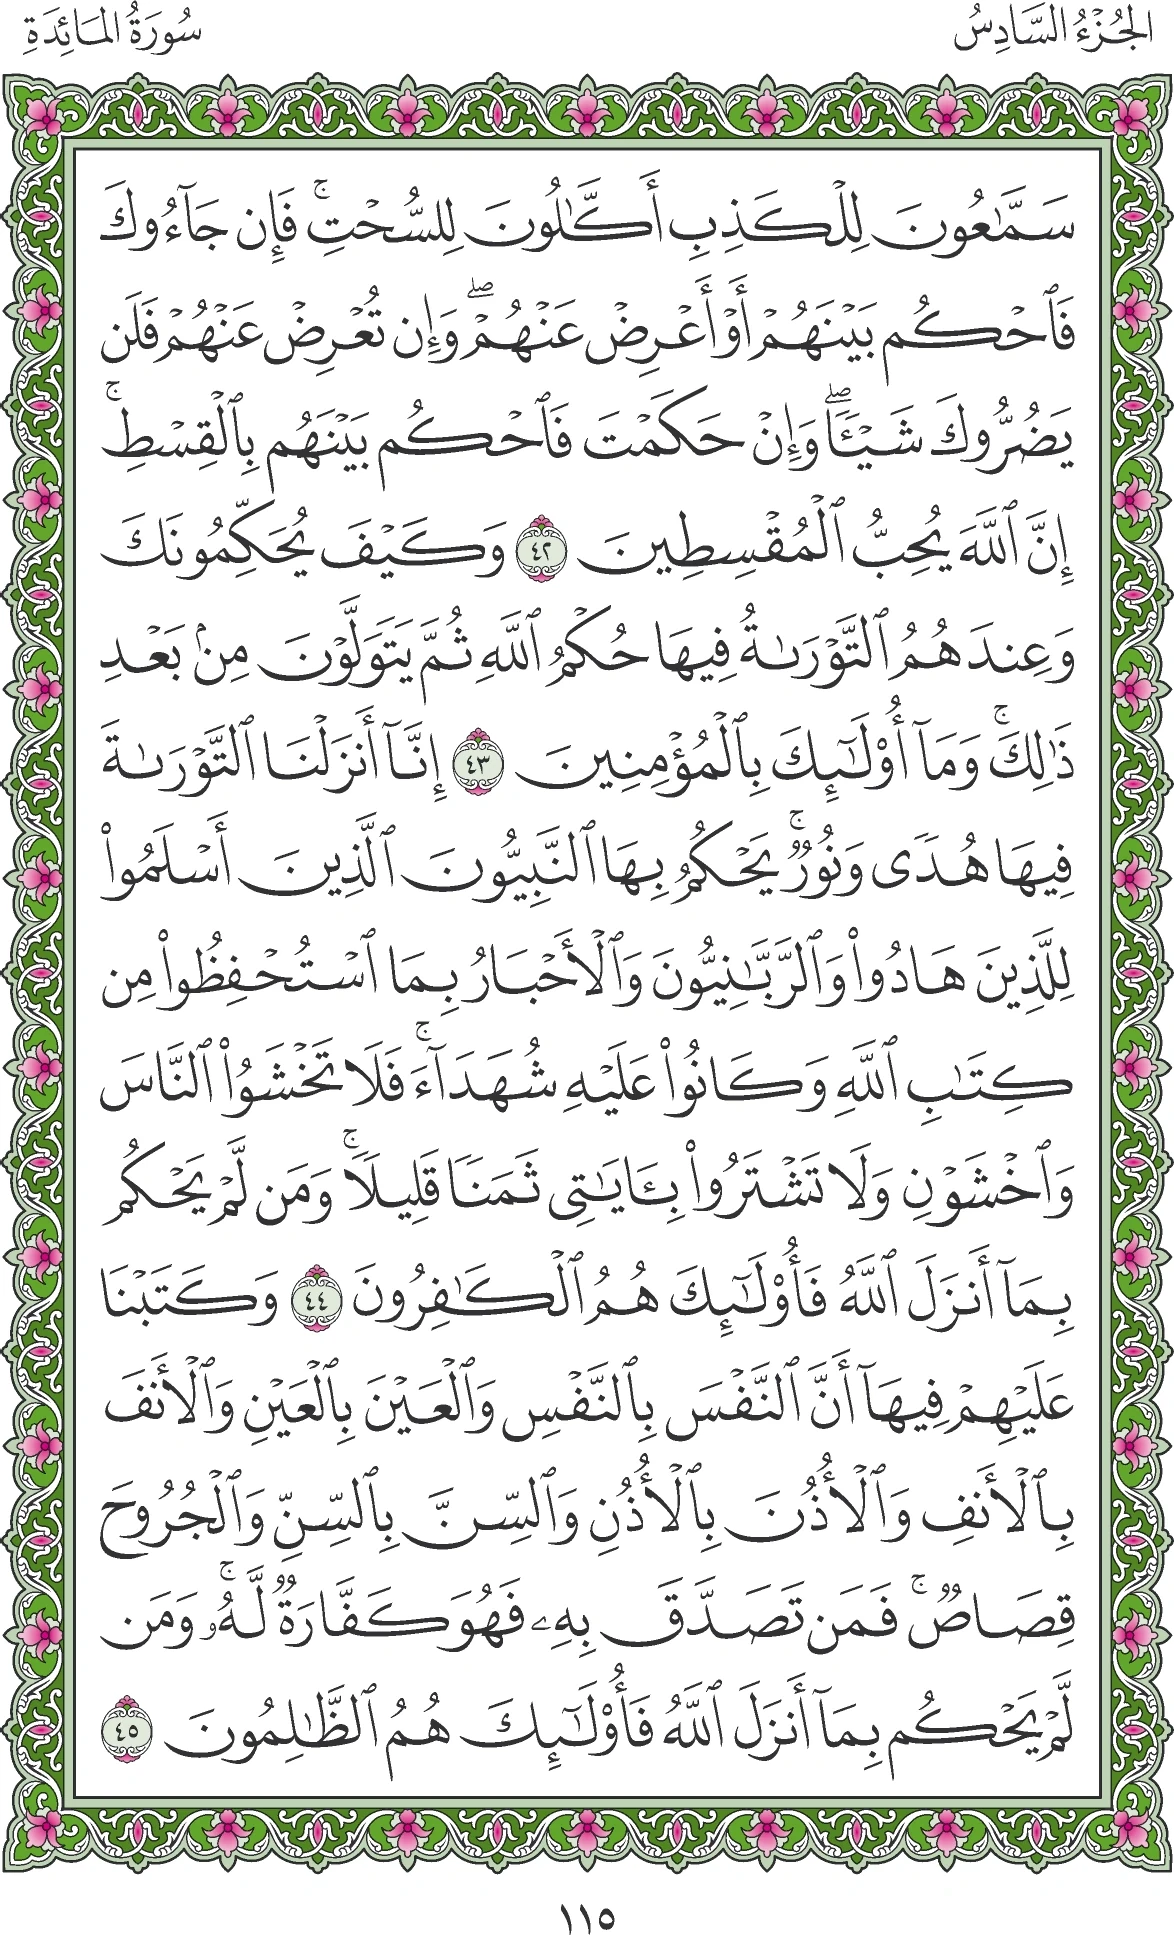 الجُزْءُ السَّادِسُ
سُورَةُ المَائِدَةِ
سَمَّٰعُونَ لِلْكَذِبِ أَكَّٰلُونَ لِلسُّحْتِۚ فَإِن جَآءُوكَ
فَٱحْكُم بَيْنَهُمْ أَوْ أَعْرِضْ عَنْهُمْۖ وَإِن تُعْرِضْ عَنْهُمْ فَلَن
يَضُرُّوكَ شَيْـًٔاۖ وَإِنْ حَكَمْتَ فَٱحْكُم بَيْنَهُم بِٱلْقِسْطِۚ
إِنَّ ٱللَّهَ يُحِبُّ ٱلْمُقْسِطِينَ ٤٢ وَكَيْفَ يُحَكِّمُونَكَ
وَعِندَهُمُ ٱلتَّوْرَىٰةُ فِيهَا حُكْمُ ٱللَّهِ ثُمَّ يَتَوَلَّوْنَ مِنۢ بَعْدِ
ذَٰلِكَۚ وَمَآ أُوْلَٰٓئِكَ بِٱلْمُؤْمِنِينَ ٤٣ إِنَّآ أَنزَلْنَا ٱلتَّوْرَىٰةَ
فِيهَا هُدًى وَنُورٌۚ يَحْكُمُ بِهَا ٱلنَّبِيُّونَ ٱلَّذِينَ أَسْلَمُواْ
لِلَّذِينَ هَادُواْ وَٱلرَّبَّٰنِيُّونَ وَٱلْأَحْبَارُ بِمَا ٱسْتُحْفِظُواْ مِن
كِتَٰبِ ٱللَّهِ وَكَانُواْ عَلَيْهِ شُهَدَآءَۚ فَلَا تَخْشَوُاْ ٱلنَّاسَ
وَٱخْشَوْنِ وَلَا تَشْتَرُواْ بِـَٔايَٰتِى ثَمَنًا قَلِيلًاۚ وَمَن لَّمْ يَحْكُم
بِمَآ أَنزَلَ ٱللَّهُ فَأُوْلَٰٓئِكَ هُمُ ٱلْكَٰفِرُونَ ٤٤ وَكَتَبْنَا
عَلَيْهِمْ فِيهَآ أَنَّ ٱلنَّفْسَ بِٱلنَّفْسِ وَٱلْعَيْنَ بِٱلْعَيْنِ وَٱلْأَنفَ
بِٱلْأَنفِ وَٱلْأُذُنَ بِٱلْأُذُنِ وَٱلسِّنَّ بِٱلسِّنِّ وَٱلْجُرُوحَ
قِصَاصٌۚ فَمَن تَصَدَّقَ بِهِۦ فَهُوَ كَفَّارَةٌ لَّهُۥۚ وَمَن
لَّمْ يَحْكُم بِمَآ أَنزَلَ ٱللَّهُ فَأُوْلَٰٓئِكَ هُمُ ٱلظَّٰلِمُونَ ٤٥
١١٥